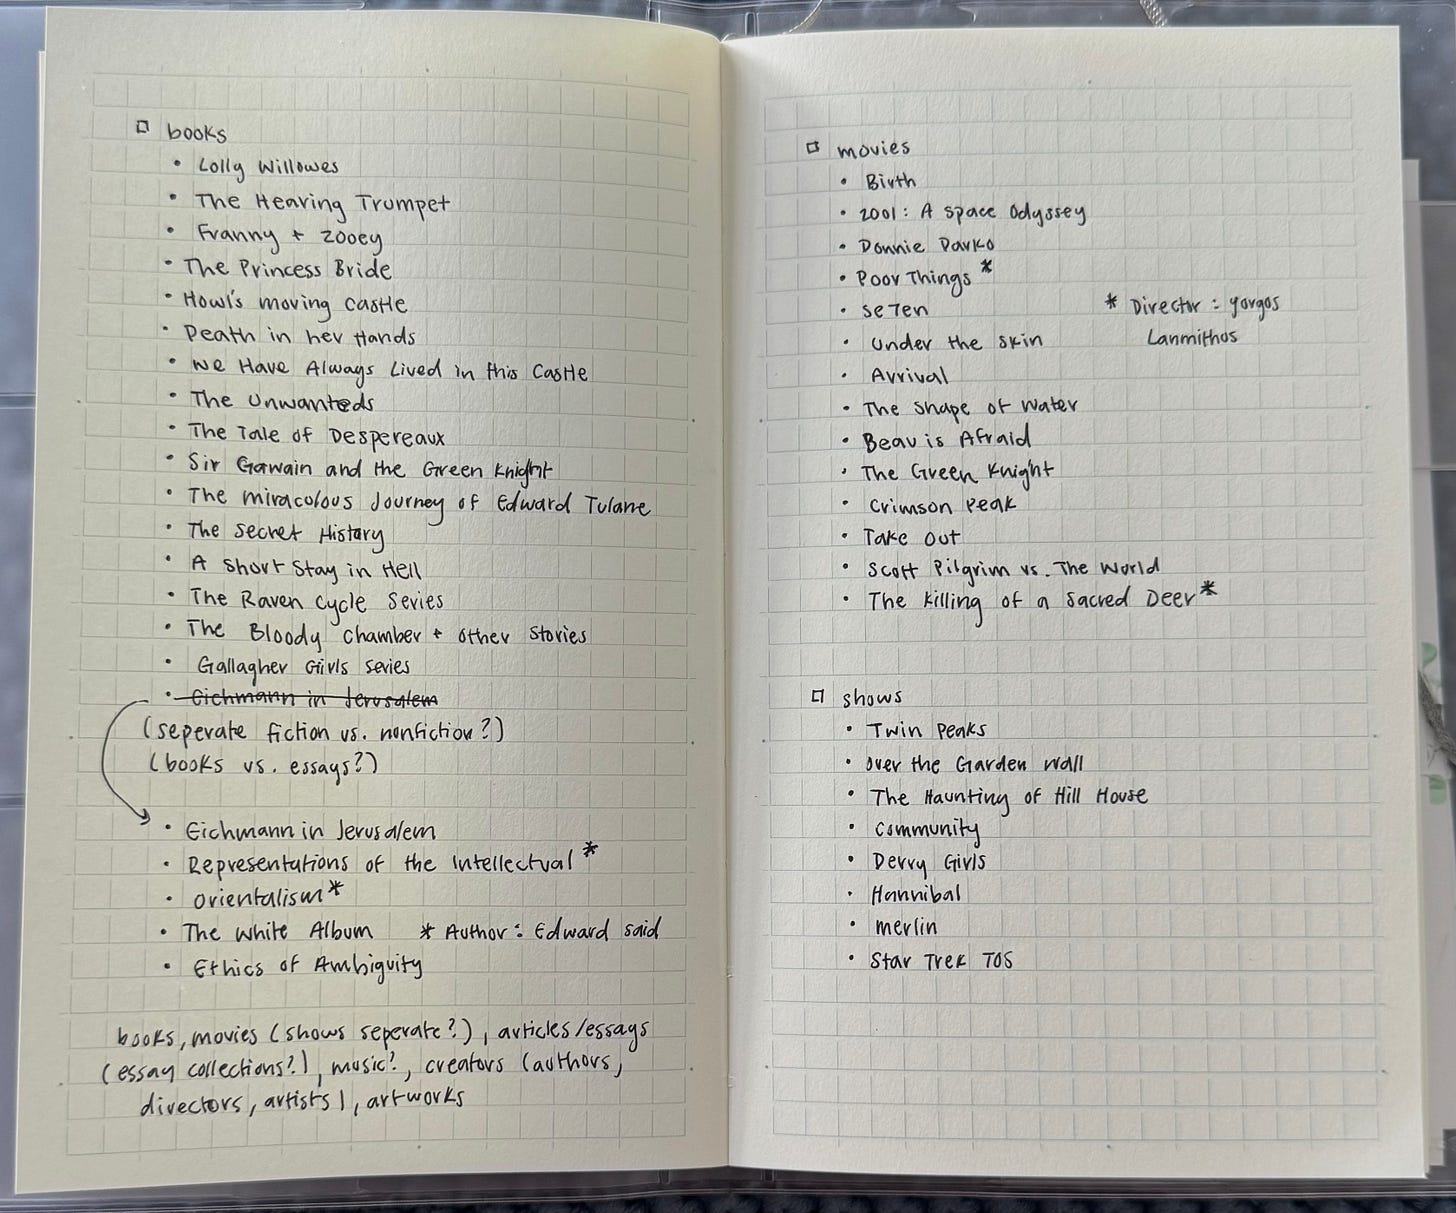 books
• Lolly Willowes
• The Hearing Trumpet
• Franny + Zooey
• The Princess Bride
• Howl's moving castle
• Death in her Hands
• We Have Always Lived in this Castle
• The Unwanteds
• The Tale of Despereaux
• Sir Gawain and the Green Knight
• The miracolous Journey of Edward Tulane
• The Secret History
• A Short Stay in Hell
• The Raven Cycle Series
• The Bloody Chamber + Other Stories
• Gallagher Girls series
• Eichmann in Jerusalem
(seperate fiction vs. nonfiction?)
(books vs. essays?)
• Eichmann in Jerusalem
• Representations of the Intellectual *
• Orientalism *
• The White Album * Author: Edward Said
• Ethics of Ambiguity
books, movies (shows seperate?), articles/essays
(essay collections?), music?, creators (authors,
directors, artists), artworks
movies
• Birth
• 2001: A Space Odyssey
• Donnie Darko
• Poor Things *
• Se7en * Director: yorgos
• Under the Skin Lanmithos
• Arrival
• The Shape of Water
• Beau is Afraid
• The Green Knight
• Crimson Peak
• Take Out
• Scott Pilgrim vs. The World
• The Killing of a Sacred Deer *
shows
• Twin Peaks
• Over the Garden Wall
• The Haunting of Hill House
• Community
• Derry Girls
• Hannibal
• merlin
• Star Trek TOS